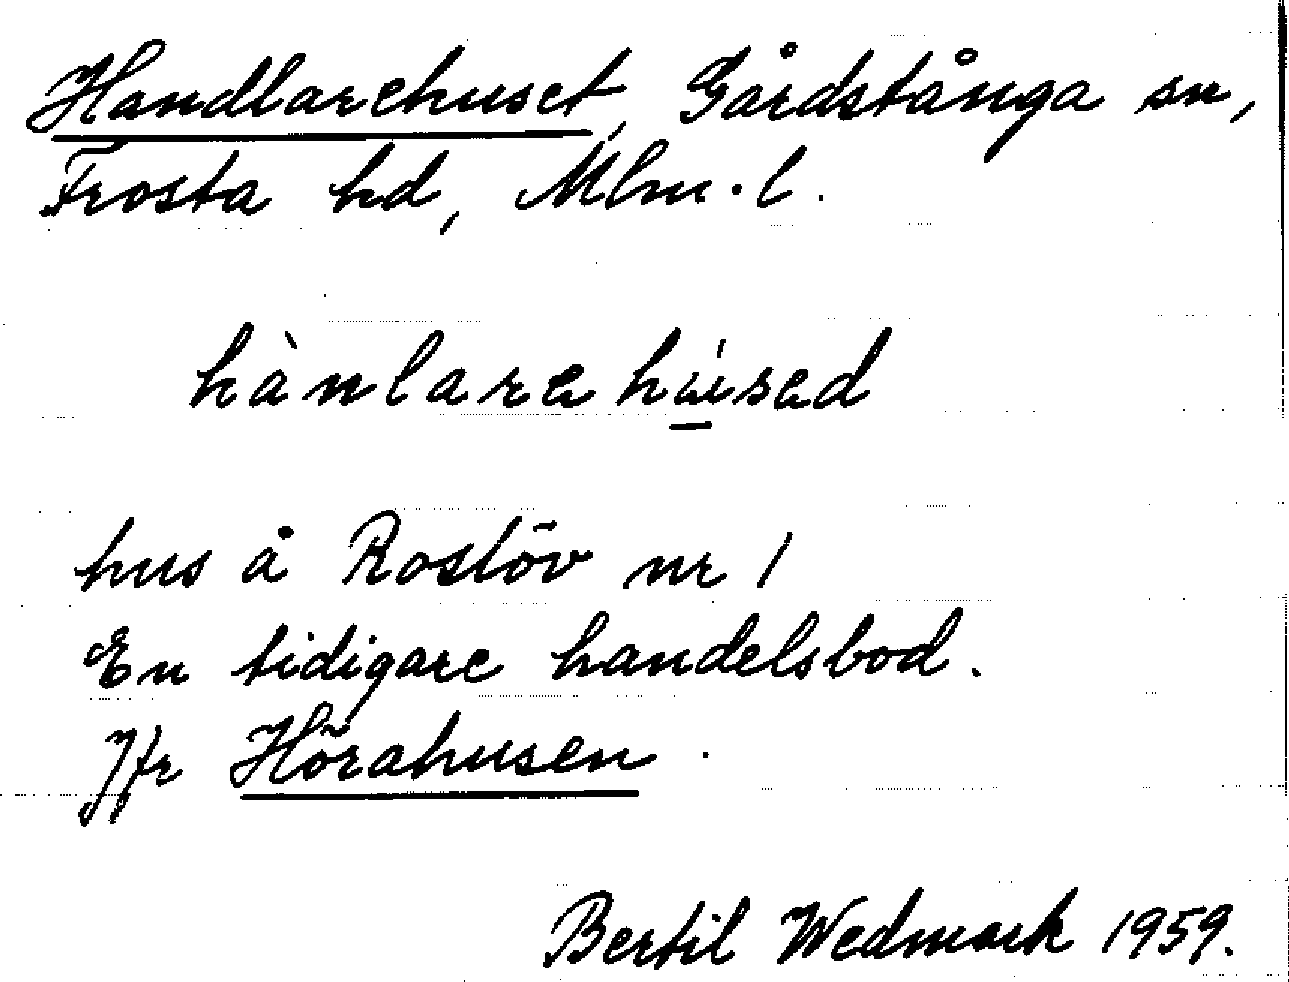 Handlarehuset, Gårdstånga sn,
Frosta hd, Mlm. l.
hànlarehúsed
hus å Roslöv nr 1
En tidigare handelsbod.
Jfr Hörahusen.
Bertil Wedmark 1959.